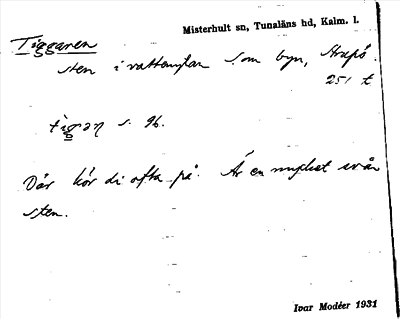 Misterhult sn, Tunaläns hd, Kalm. l.
Tiggaren
sten i vattenytan S om byn, Strupö.
251 t
tigaṇ s. 96.
Där kör di ofta på. Är en mycket svår
sten.
Ivar Modéer 1931